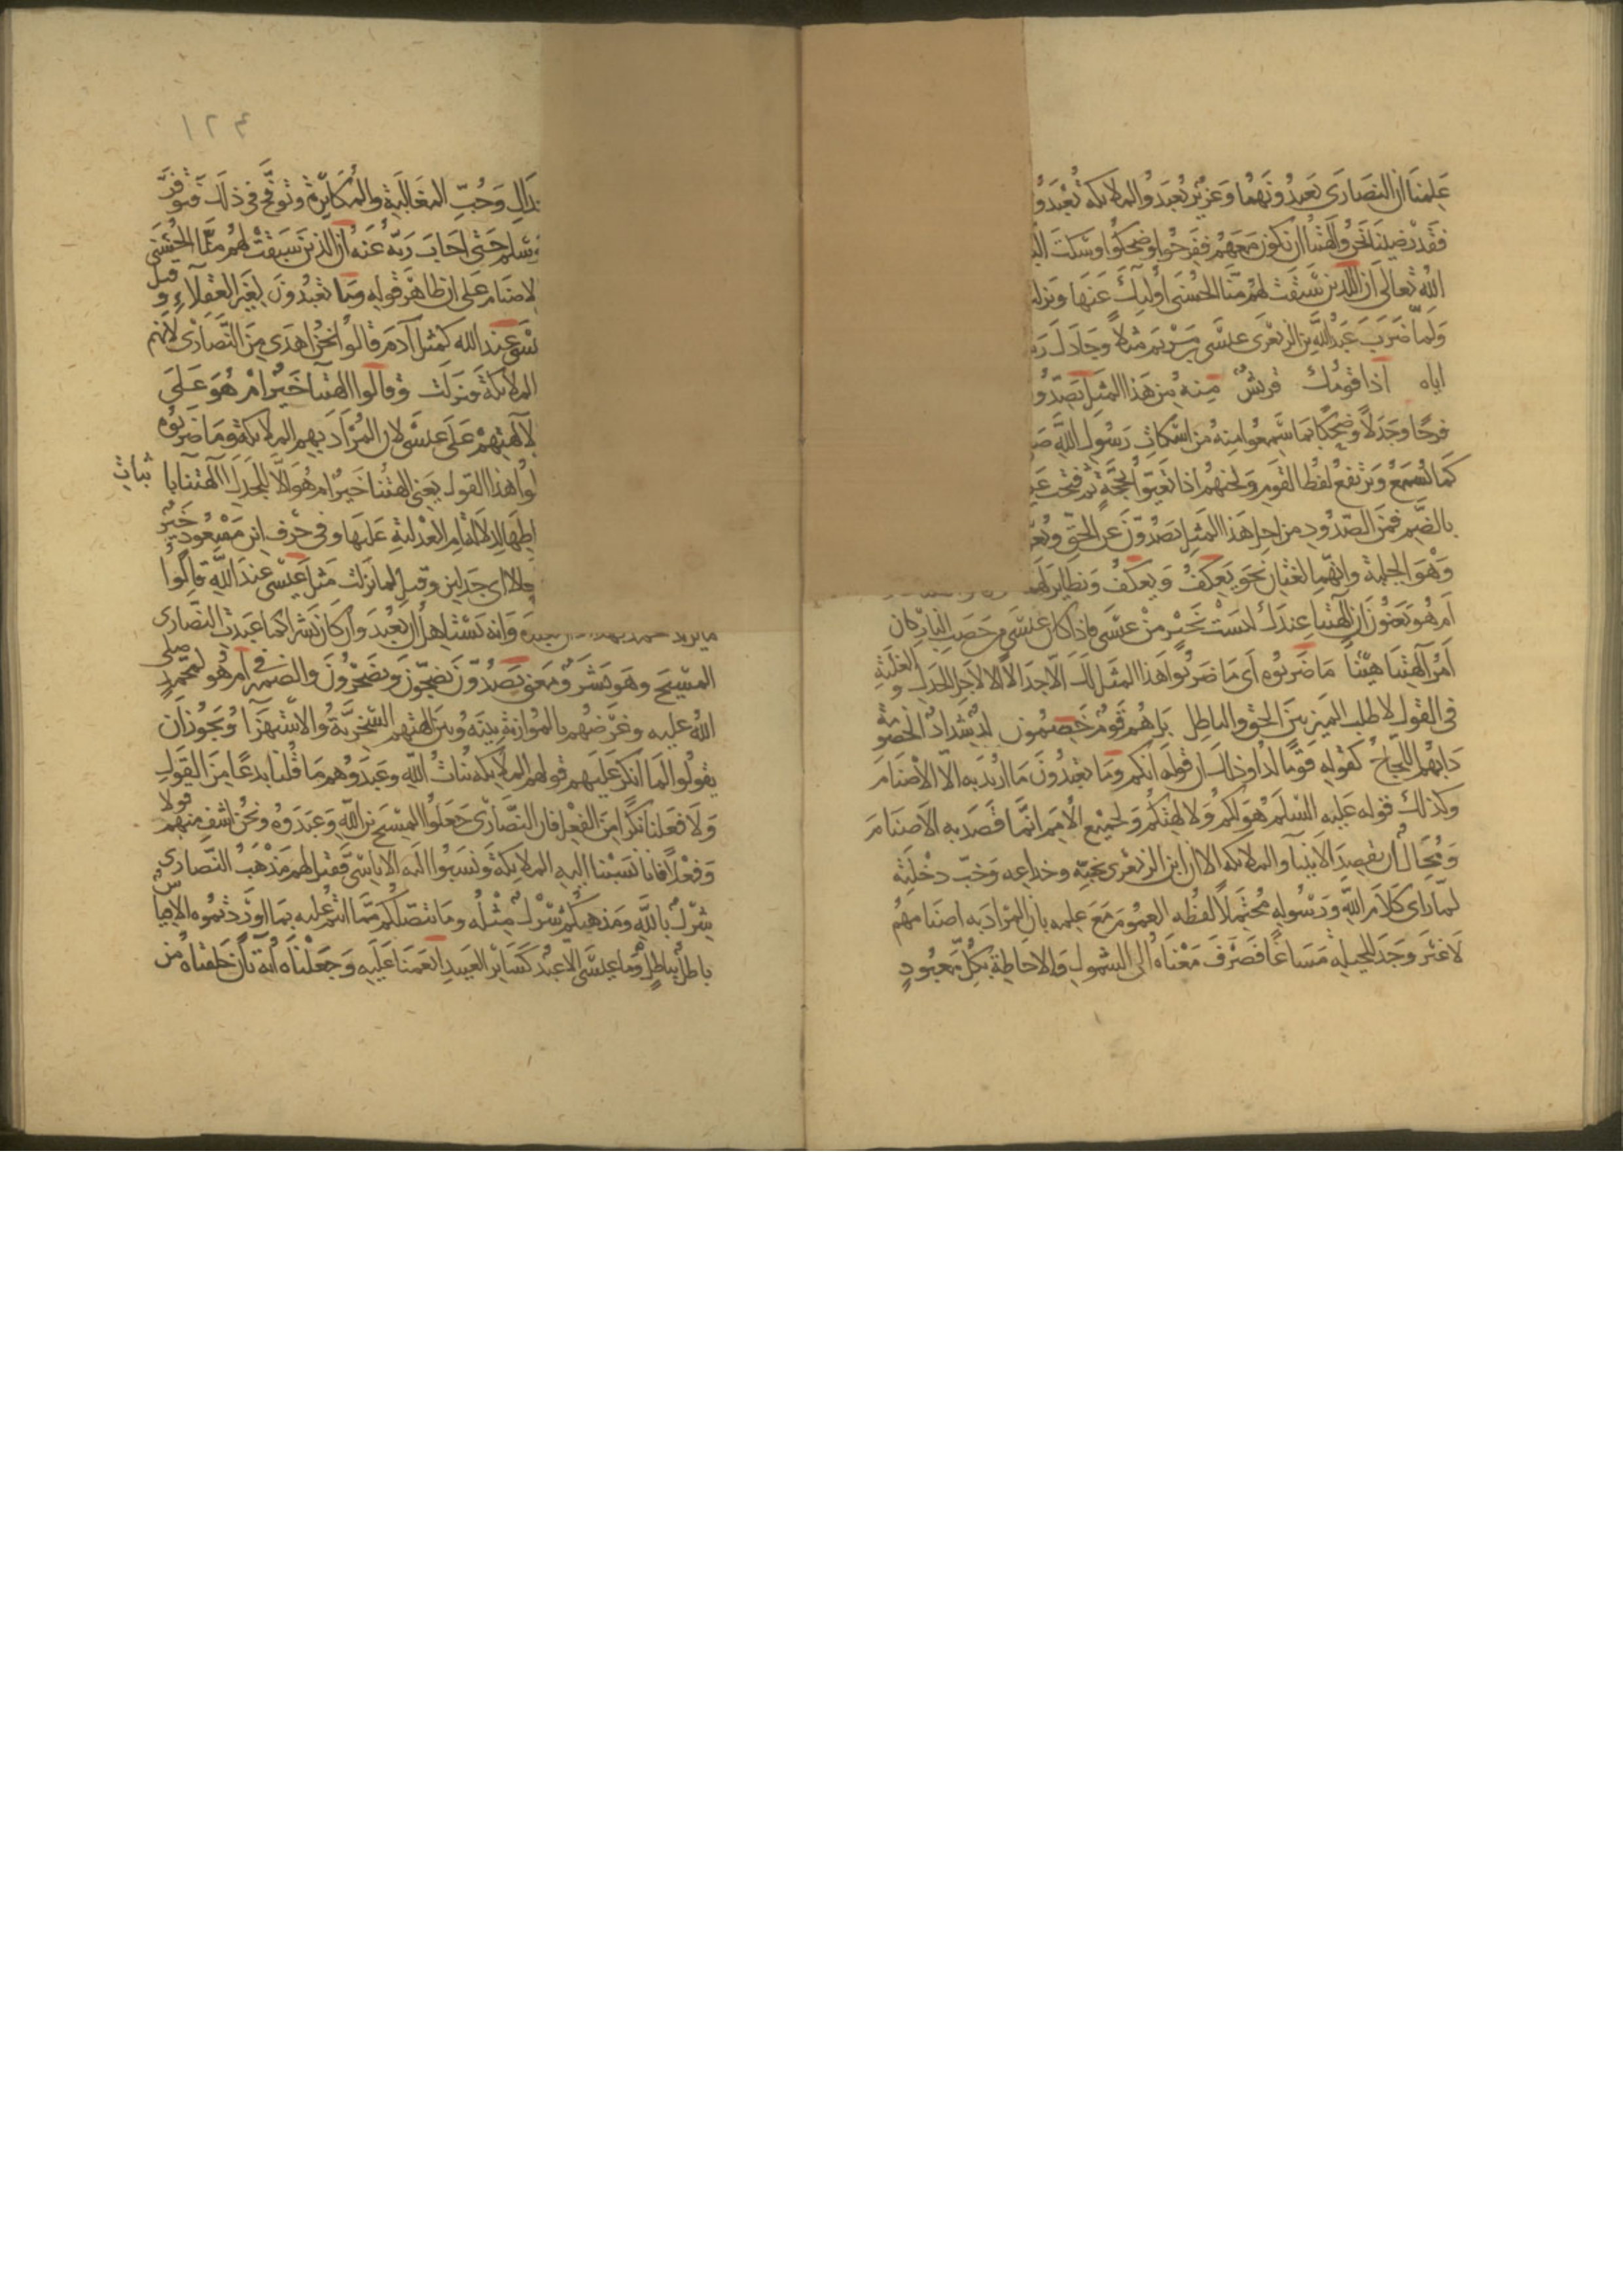 علمنا ان النصارى يعبدونهما وعزير يعبد والملائكة يعبدو
فقد رضينا نحن والهتنا ان نكون معهم ففرحوا وضحكوا وسكت
الله تعالى ان الذين سبقت لهم منا الحسنى اوليك عنها ونزل
ولما ضرب عبد الله بن الزبعرى عيسى بن مريم مثلا وجادل
اياه اذا قومك قريش منه من هذا المثل يصدو
فرحا وجدلا وضحكا بما سمعوا منه من اسكات رسول الله
كما تسمع وترتفع لغط القوم ولجبهم اذا تعيوا بحجة ثم فتحت
بالضم فمن الصدود من اجل هذا المثل يصدون عن الحق
وهو الجلبة وانهما لغتان نحو يعكف ويعكف ونظاير
ام هو يعنون ان الهتنا عندك ليست بخير من عيسى فاذا كان عيسى من حصب النار كان
امر آلهتنا هينا ما ضربوه اى ما ضربوا هذا المثل لك الا جدلا الا لاجل الجدل والغلبة
فى القول لا لطلب الميز بين الحق والباطل بل هم قوم خصمون لد شداد الخصومة
دابهم اللجاج كقوله قوما لدا وذلك ان قوله انكم وما تعبدون ما اريد به الا الاصنام
وكذلك قوله عليه السلم هو لكم ولالهتكم ولجميع الامم انما قصد به الاصنام
ومحال ان يقصد الانبيا والملائكة الا ان ابن الزبعرى بخبه وخداعه وخبث دخلته
لما راى كلام الله ورسوله محتملا لفظه العموم مع علمه بان المراد به اصنامهم
لا غير وجد للحيلة مساغا فصرف معناه الى الشمول والاحاطة بكل معبود
١٢٤
دال وحب المغالبة والمكابرة وتوقح فى ذلك فتوقر
وسلم حتى اجاب ربه عنه ان الذين سبقت لهم منا الحسنى
لاصنام على ان ظاهر قوله وما تعبدون لغير العقلاء وقيل
عند الله كمثل آدم قالوا نحن اهدى من النصارى لانهم
الملائكة فنزلت وقالوا االهتنا خير ام هو على
لآلهتهم على عيسى لان المراد بهم الملائكة وما ضربوه
لوا هذا القول يعنى االهتنا خير ام هو الا للجدل االهتنا باثبات
لاستفهام الا ام العدلية عليها وفى حرف ابن مسعود خير
جدلا اى جدلين وقيل لما نزلت مثل عيسى عند الله قالوا
ما يريد محمد بهذا وانه يستاهل ان يعبد وان كان بشرا كما عبدت النصارى
المسيح وهو بشر ومعنى يصدون يضجون ويضجرون والضمير فى ام هو لمحمد صلى
الله عليه وغرضهم بالموازنة بينه وبين الهتهم السخرية والاستهزا ويجوز ان
يقولوا لما انكر عليهم قولهم الملائكة بنات الله وعبدوهم ما قلنا بدعا من القول
ولا فعلنا نكرا من الفعل فان النصارى جعلوا المسيح بن الله وعبدوه ونحن اشف منهم قولا
وفعلا فانا نسبنا اليه الملائكة ونسبوا اليه الاناسى فقيل لهم مذهب النصارى
شرك بالله ومذهبكم شرك مثله وما تنصلكم مما انتم عليه بما اوردتموه الا قياس
باطل بباطل وما عيسى الا عبد كساير العبيد انعمنا عليه وجعلناه آية بان خلقناه من